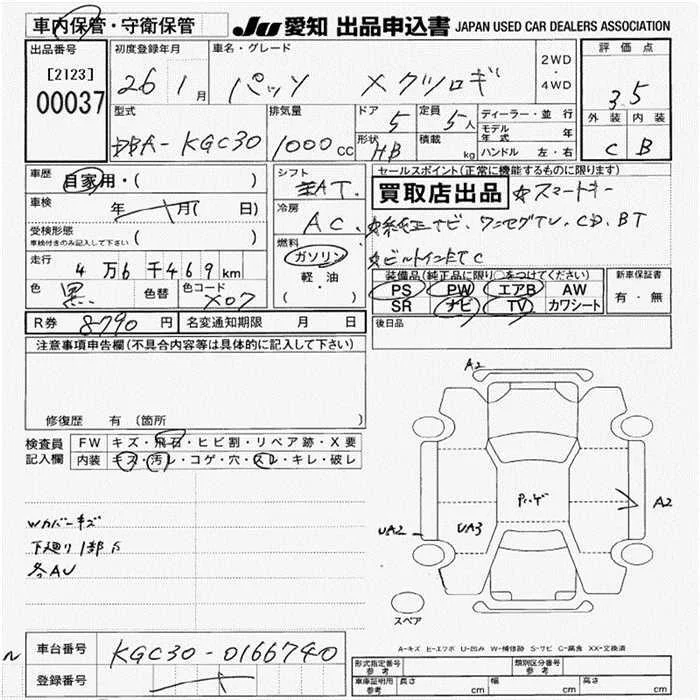 車内保管・守衛保管
JU 愛知 出品申込書 JAPAN USED CAR DEALERS ASSOCIATION
出品番号
[2123]
00037
初度登録年月
26 1月
車名・グレード
パッソ Xクツロギ
2WD
・
4WD
評価点
3.5
外装 内装
C B
型式
DBA-KGC30
排気量
1000cc
ドア
5
形状
HB
定員
5人
積載
kg
ディーラー・並行
モデル年式 年
ハンドル 左・右
車歴
自家用・( )
車検
年 月( 日)
受検形態
車検付きのみ記入して下さい ( )
走行
4万6千469km
色
黒
色替
色コード
X07
シフト
AT
冷房
AC
燃料
ガソリン
軽・油
( )
セールスポイント(正常に機能するものに限ります)
買取店出品 ☆スマートキー
☆純正ナビ、ワンセグTV、CD、BT
☆ビルトインETC
装備品(純正品に限り○をつけてください)
PS PW エアB AW
SR ナビ TV カワシート
新車保証書
有・無
後日品
R券 8790円
名変通知期限 月 日
注意事項申告欄(不具合内容等は具体的に記入して下さい)
修復歴 有(箇所 )
検査員記入欄
FW キズ・飛石・ヒビ割・リペア跡・X要
内装 キズ・汚レ・コゲ・穴・スレ・キレ・破レ
Wカバーキズ
下廻り1部S
各AU
A2
A2
UA2
UA3
スペア
A-キズ E-エクボ U-凹み W-補修跡 S-サビ C-腐食 XX-交換済
車台番号 KGC30-0166740
登録番号
形式指定番号 参考
類別区分番号 参考
車庫証明用 参考
長さ cm
幅 cm
高さ cm